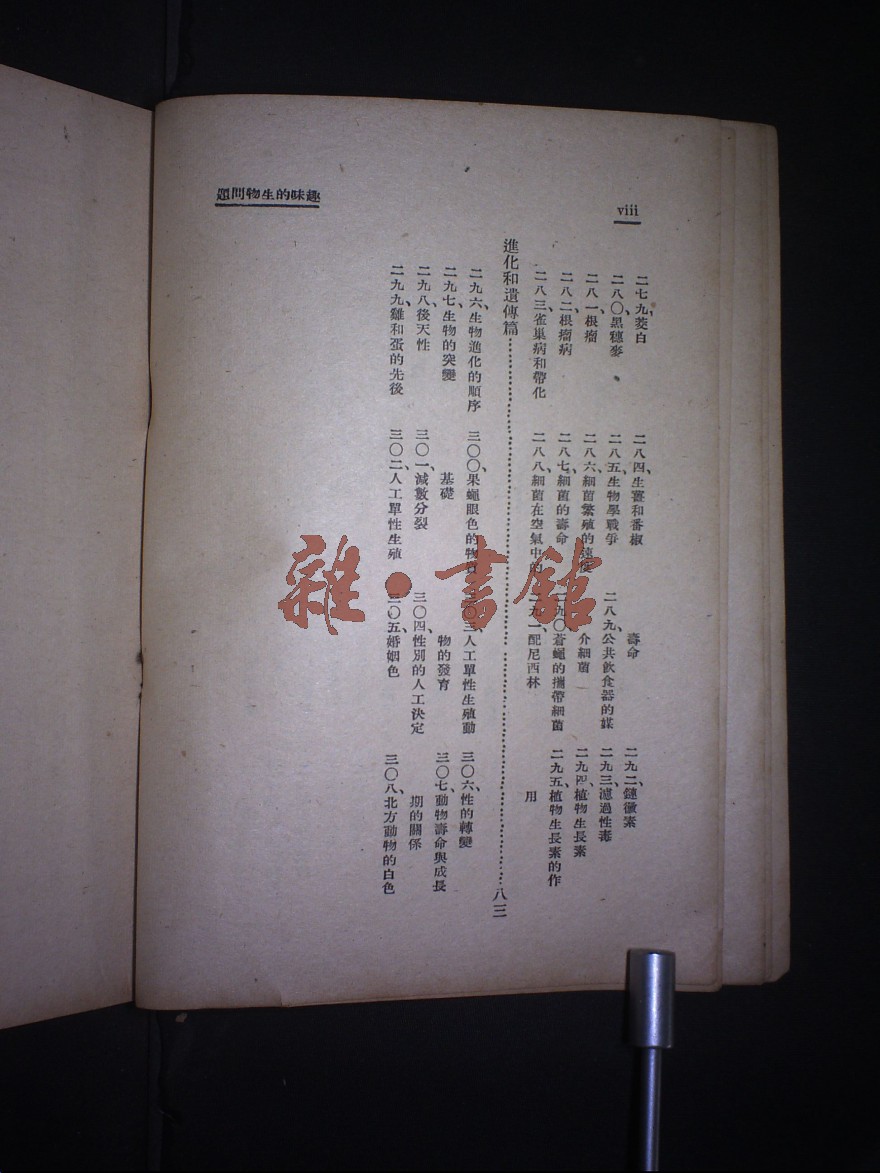 viii
趣味的生物問題
二七九、茭白
二八〇、黑穗麥
二八一、根瘤
二八二、根瘤病
二八三、雀巢病和帶化
二八四、生薑和番椒
二八五、生物學戰爭
二八六、細菌繁殖的速度
二八七、細菌的壽命
二八八、細菌在空氣中的
壽命
二八九、公共飲食器的媒
介細菌
二九〇、蒼蠅的攜帶細菌
二九一、配尼西林
二九二、鏈黴素
二九三、濾過性毒
二九四、植物生長素
二九五、植物生長素的作
用
進化和遺傳篇……八三
二九六、生物進化的順序
二九七、生物的突變
二九八、後天性
二九九、雞和蛋的先後
三〇〇、果蠅眼色的物質
基礎
三〇一、減數分裂
三〇二、人工單性生殖
三〇三、人工單性生殖動
物的發育
三〇四、性別的人工決定
三〇五、婚姻色
三〇六、性的轉變
三〇七、動物壽命與成長
期的關係
三〇八、北方動物的白色
雜·書館